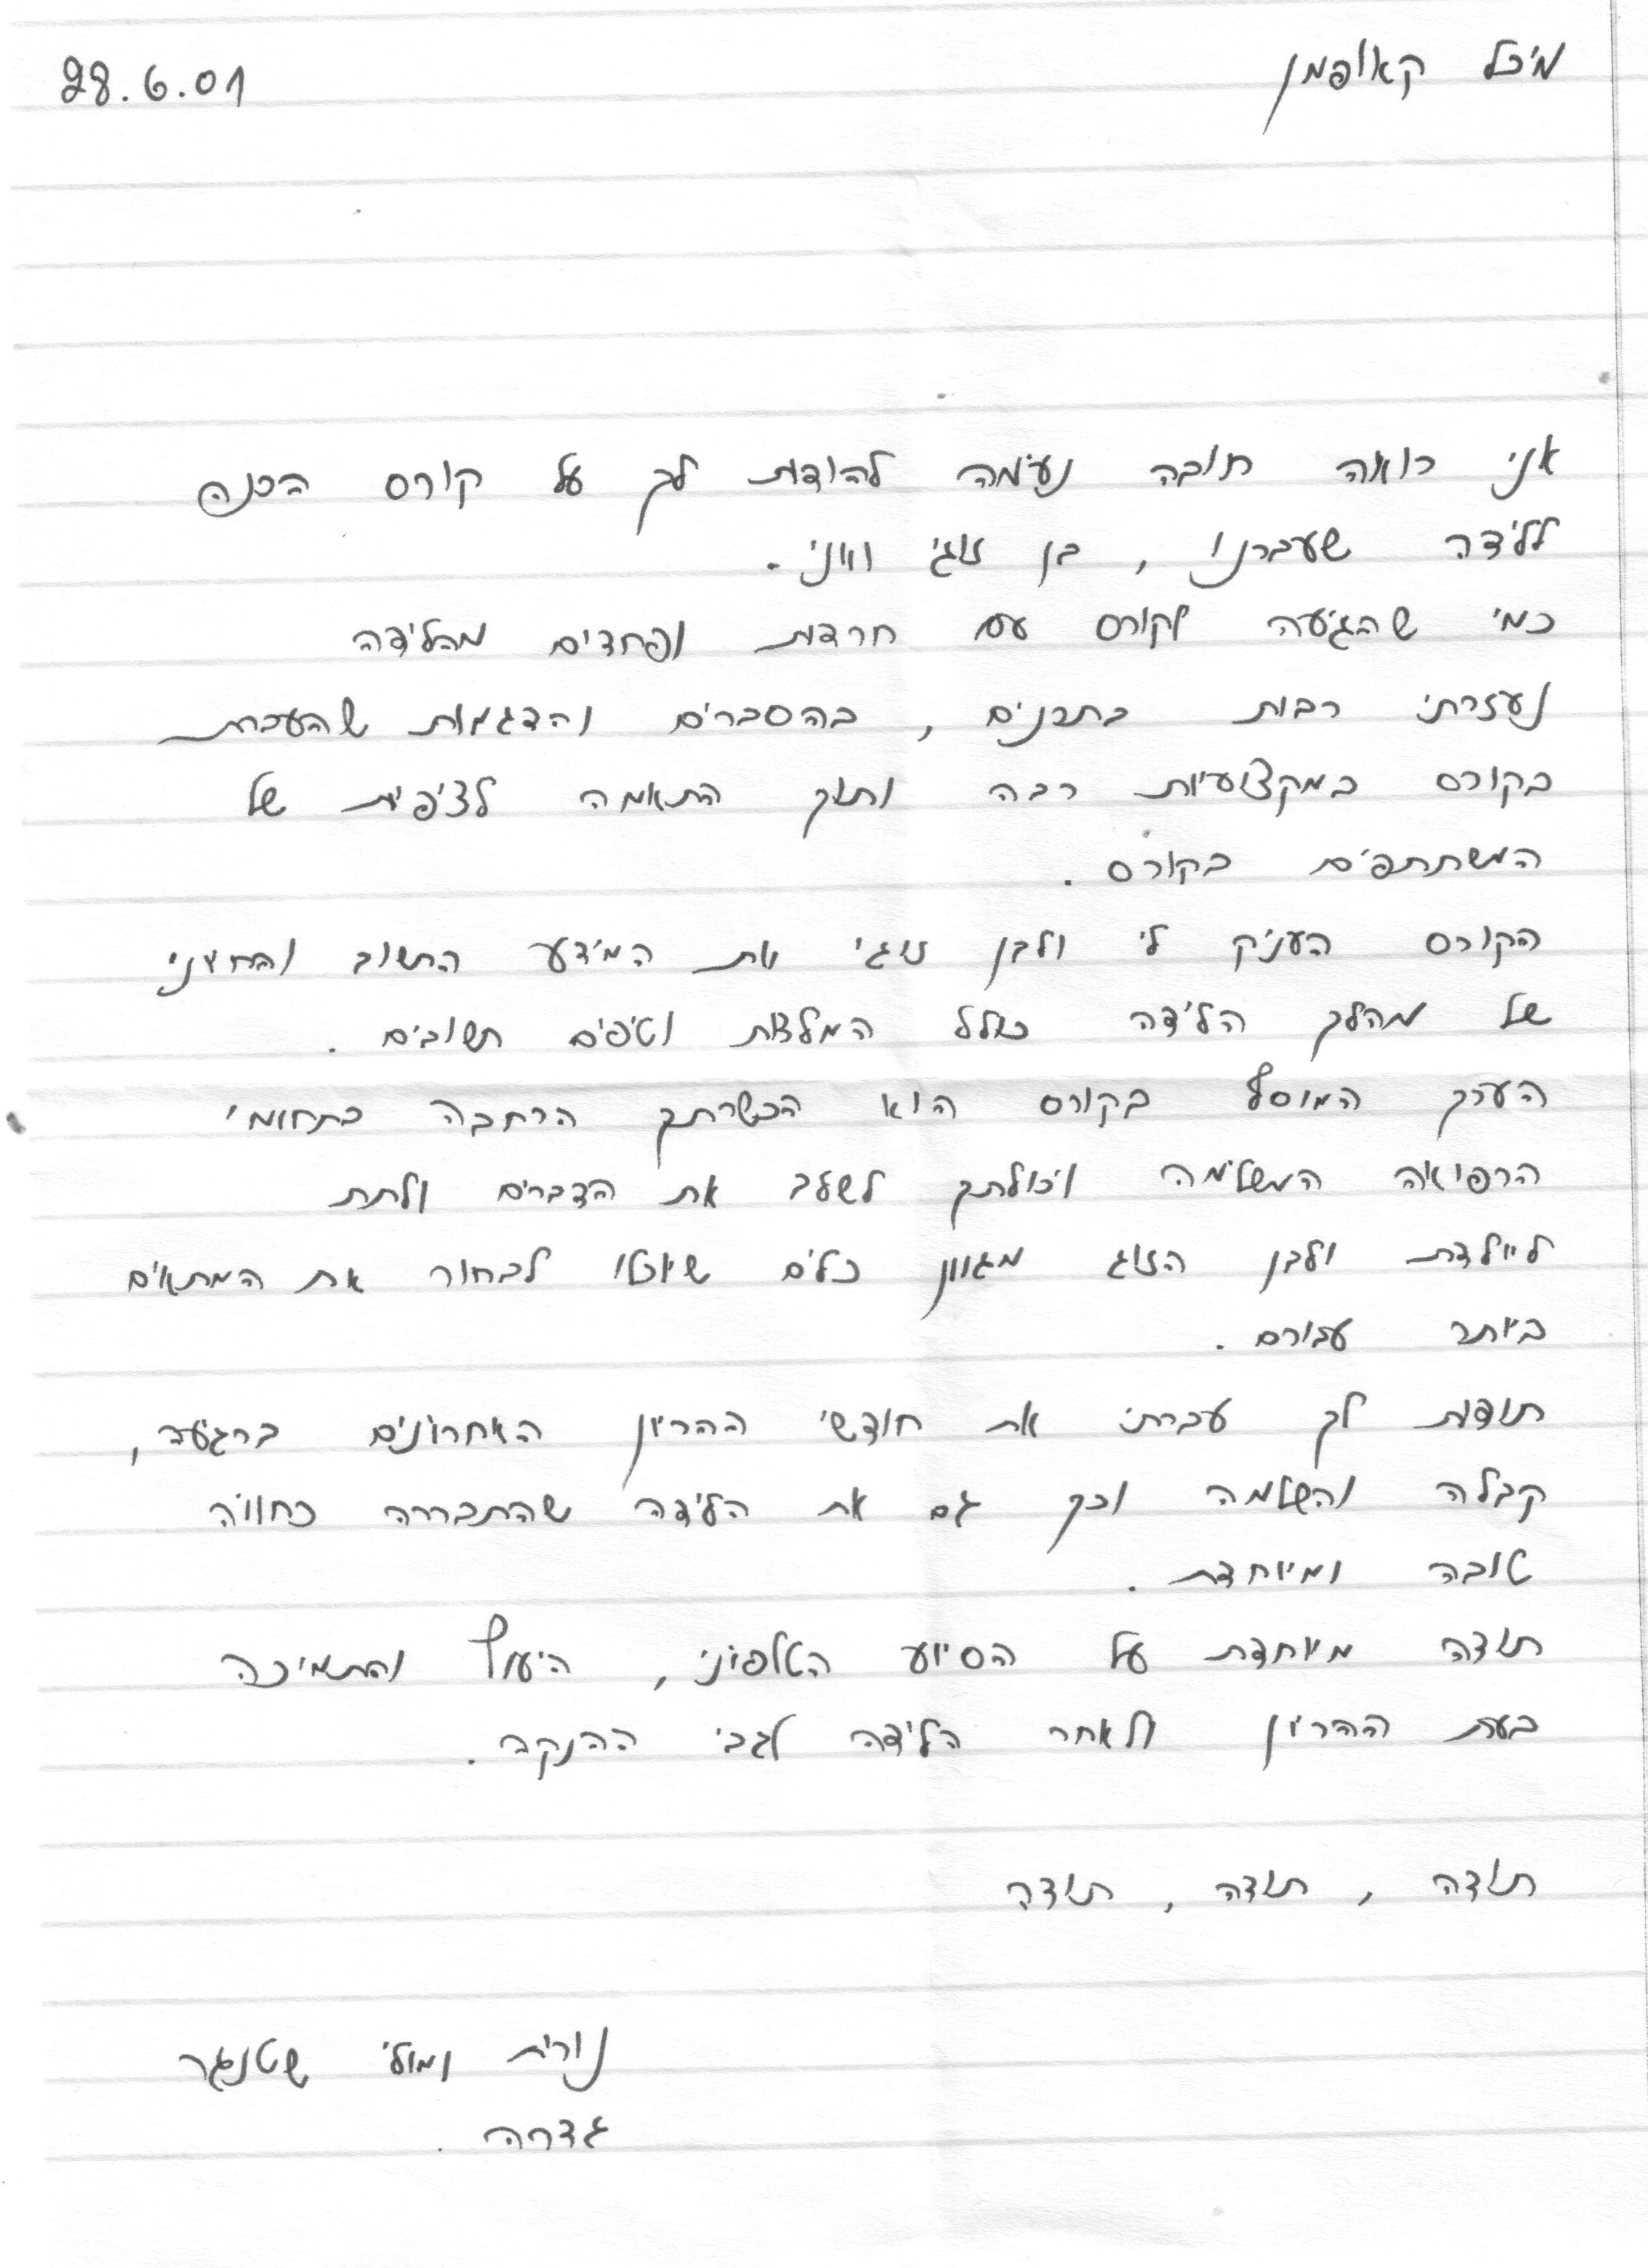 מיכל קאופמן 28.6.01
אני רואה חובה נעימה להודות לך על קורס הכנה
ללידה שעברנו, בן זוגי ואני.
כמי שהגיעה לקורס עם חרדות ופחדים מהלידה
נעזרתי רבות בתכנים, בהסברים והדגמות שהעברת
בקורס במקצועיות רבה ותוך התאמה לציפיות של
המשתתפים בקורס.
הקורס העניק לי ולבן זוגי את המידע החשוב והחיוני
של מהלך הלידה כולל המלצות וטיפים חשובים.
הערך המוסף בקורס הוא הכשרתך הרחבה בתחומי
הרפואה המשלימה ויכולתך לשלב את הדברים ולתת
ליולדת ולבן הזוג מגוון כלים שיוכלו לבחור את המתאים
ביותר עבורם.
תודות לך עברתי את חודשי ההריון האחרונים ברגיעה,
קבלה והשלמה וכך גם את הלידה שהתבררה כחוויה
טובה ומיוחדת.
תודה מיוחדת על הסיוע הטלפוני, היעוץ והתמיכה
בעת ההריון ולאחר הלידה לגבי ההנקה.
תודה, תודה, תודה
נורית ומולי שטנגר
גדרה.